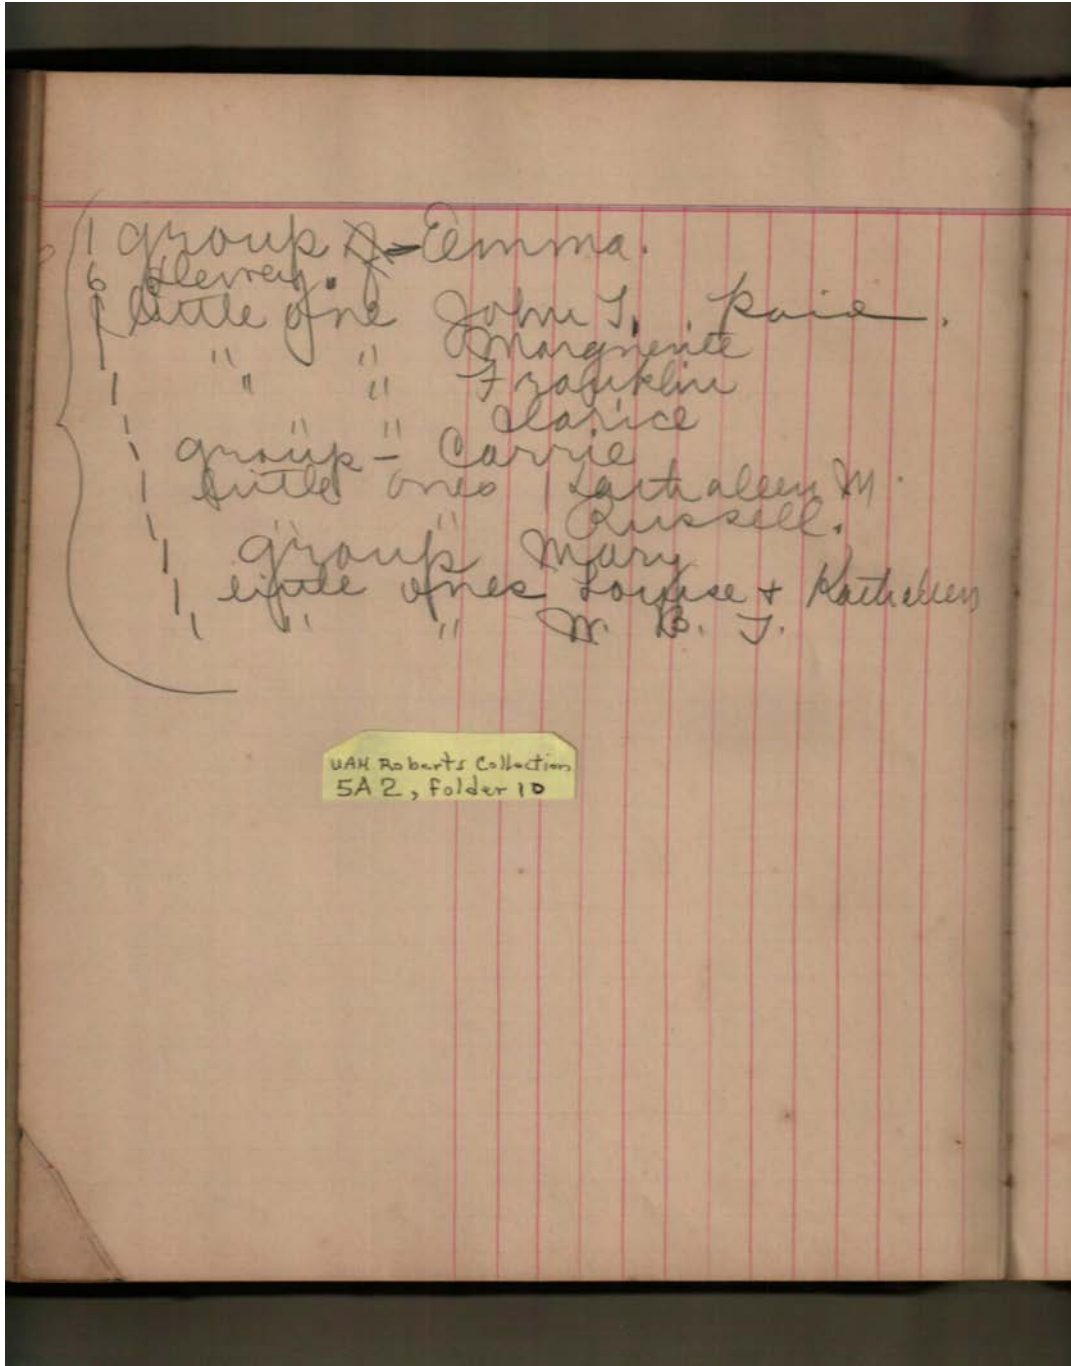 1 group - Emma.
6 Henrey.
1 little one John T. paid.
1 " " Marguerite
1 " " Franklin
1 " " Clarice
1 group - Carrie
1 little ones Kathaleen M.
1 " " Russell.
1 group Mary
1 little ones Louise + Kathaleen
1 " " W. B. T.
UAH Roberts Collection
5A2, Folder 10